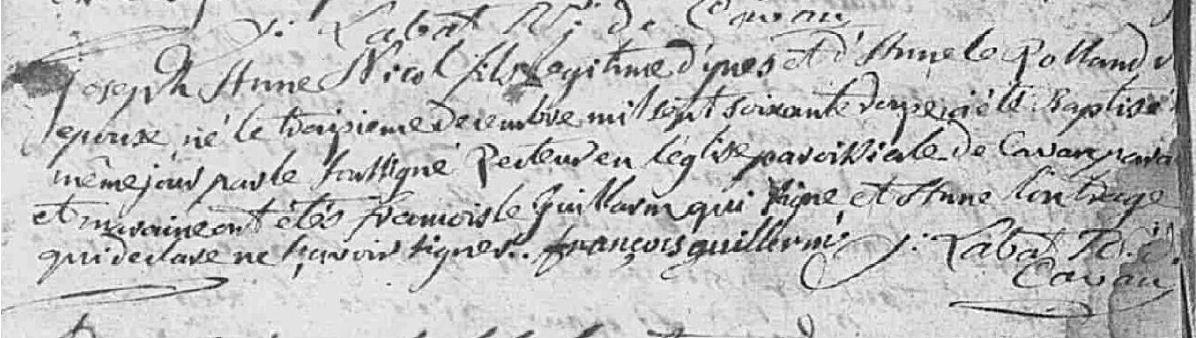 y: Labat R. de Cavan
Joseph Anne Nicol fils legitime d'yves et d'Anne le Rolland
epouse, né le troisieme decembre mil sept soixante douze, a été Baptisé
même jour par le soussigné Recteur en l'église paroissiale de Cavan parain
et maraine ont étés francois le Guillarm qui signe et Anne
qui declare ne sçavoir signer. françois guillerm y: Labat R. d.
Cavan